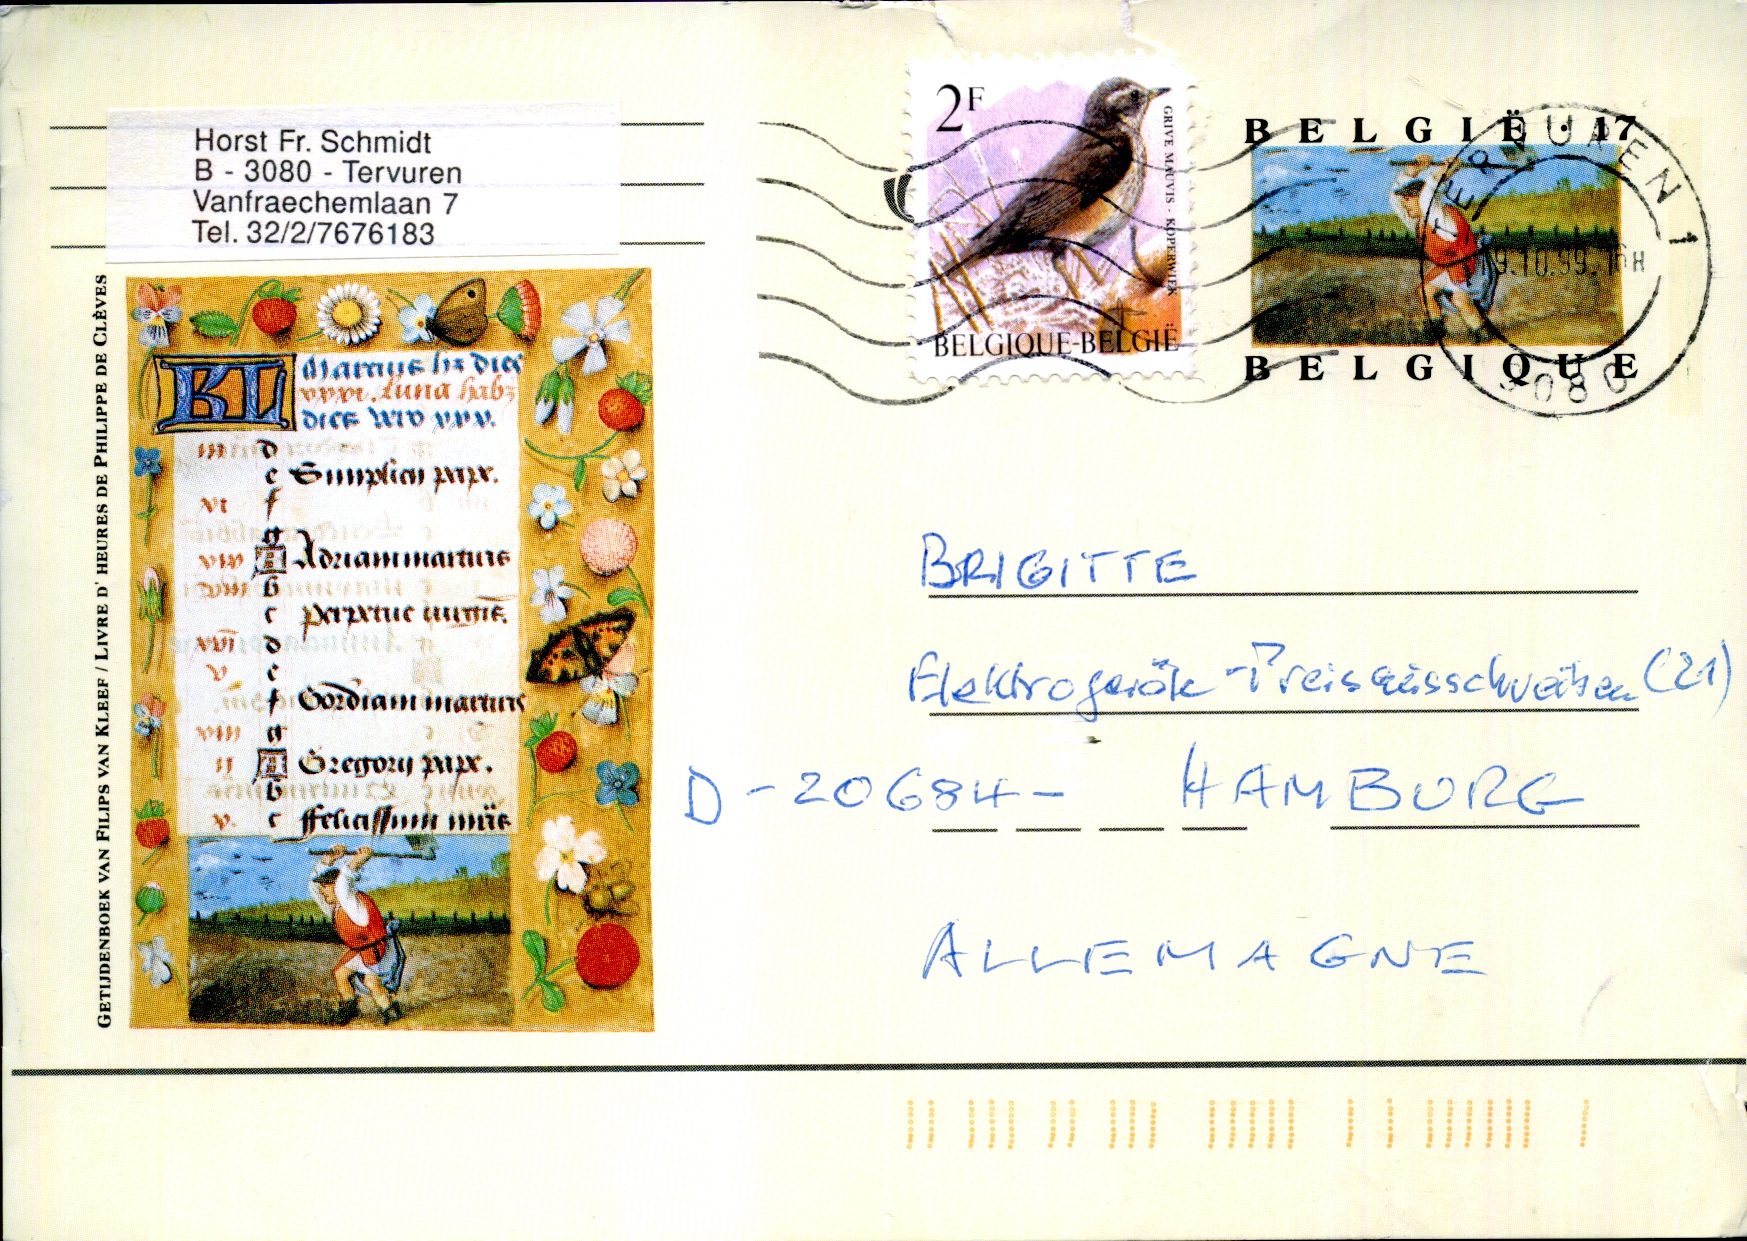 Horst Fr. Schmidt
B - 3080 - Tervuren
Vanfraechemlaan 7
Tel. 32/2/7676183
2F
GRIVE MAUVIS - KOPERWIEK
BELGIQUE-BELGIË
BELGIË · 17
BELGIQUE
TERVUREN 1
19.10.99. 16H
3080
GETIJDENBOEK VAN FILIPS VAN KLEEF / LIVRE D' HEURES DE PHILIPPE DE CLÈVES
KL Martius hz dies
xxxi. Luna habz
dies xxx.
iii d
e Simplicii pape.
xi f
g
A Adriani martiris
b
c perpetue
xvi d
v e
f Gordiani martiris
xiii g
ii A Gregorii pape.
b
v. c
BRIGITTE
Elektrogeräte-Preisausschreiben (21)
D - 20684 - HAMBURG
ALLEMAGNE